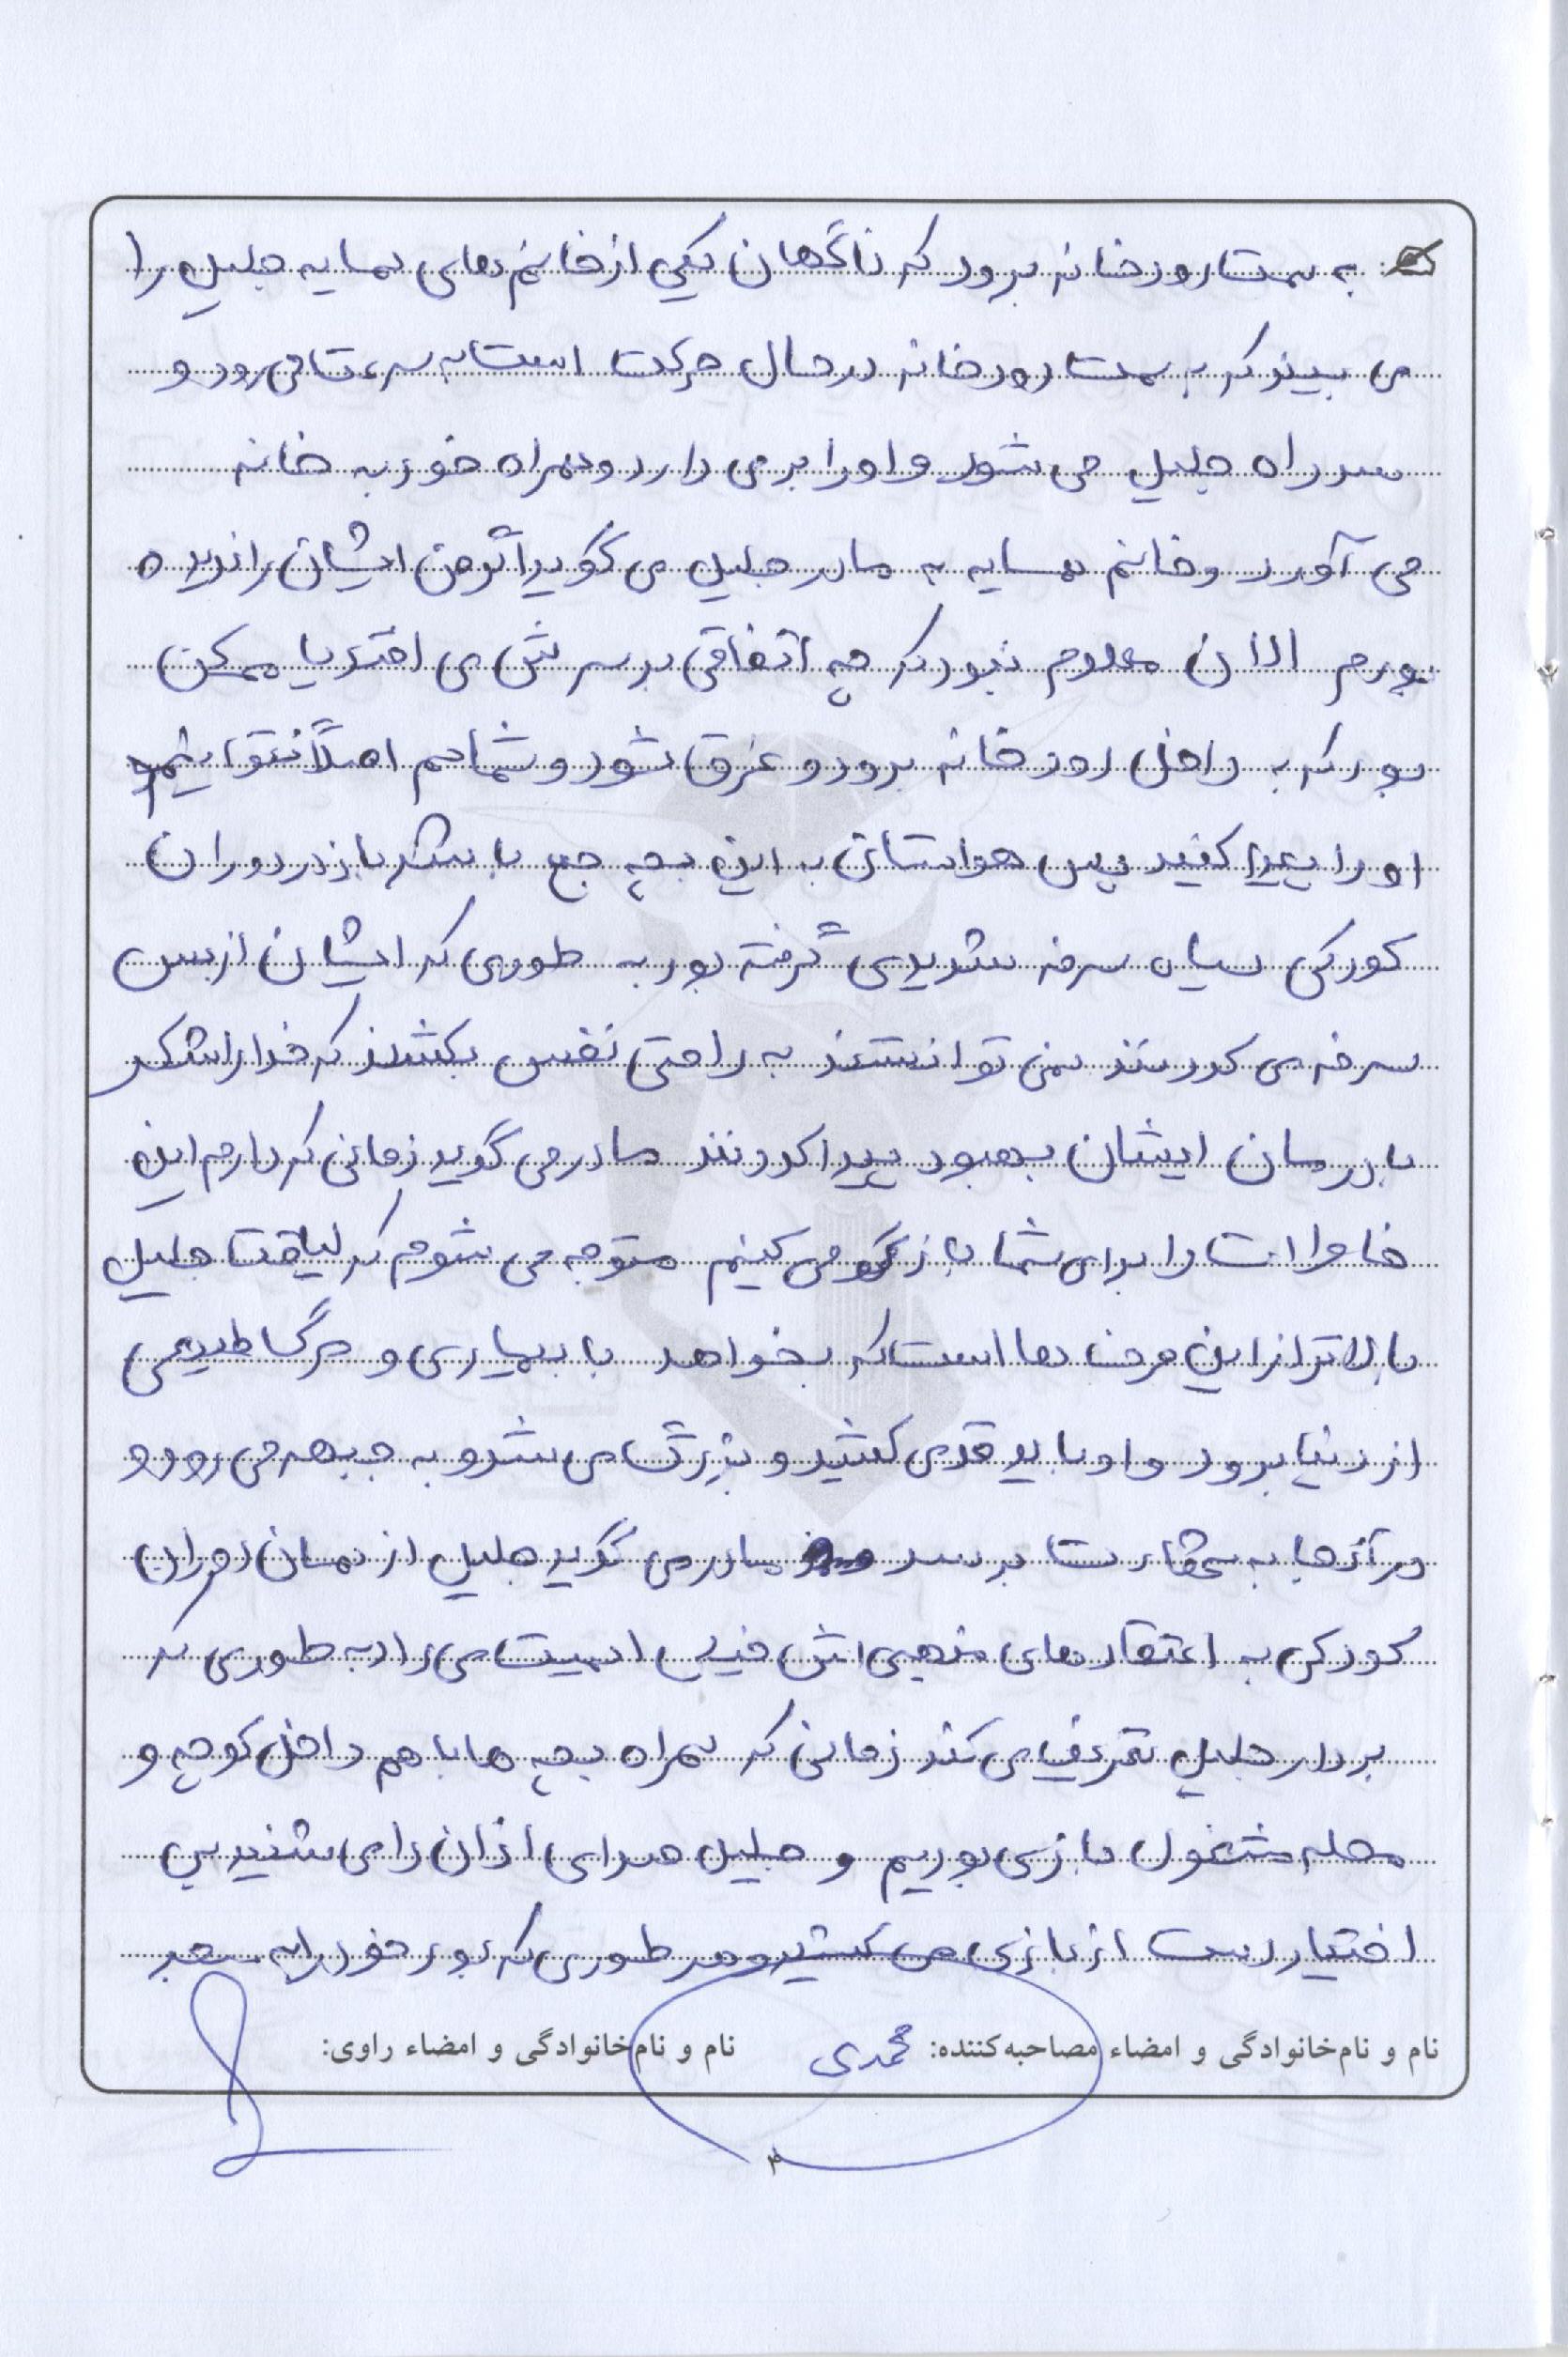 به سمت رودخانه برود که ناگهان یکی از خانم های همسایه جلیل را
می بیند که به سمت رودخانه در حال حرکت است به سرعت می رود و
سد راه جلیل می شود و او را بر می دارد و همراه خود به خانه
می آورد و خانم همسایه به مادر جلیل می گوید اگر من ایشان را ندیده
بودم الان معلوم نبود که چه اتفاقی بر سرش می افتد یا ممکن
بود که به داخل رودخانه برود و غرق شود و شما هم اصلاً نتوانید
او را پیدا کنید پس حواستان به این بچه جمع باشد باز در دوران
کودکی سیاه سرفه شدیدی گرفته بود به طوری که ایشان از بس
سرفه می کردند نمی توانستند به راحتی نفس بکشند که خدا را شکر
با درمان ایشان بهبود پیدا کردند مادر می گوید زمانی که دارم این
خاطرات را برای شما بازگو می کنم متوجه می شوم که لیاقت جلیل
بالاتر از این حرف ها است که بخواهد با بیماری و مرگ طبیعی
از دنیا برود و او باید قد می کشید و بزرگ می شد و به جبهه می رود و
در آنجا به شهادت برسد مادر می گوید جلیل از همان دوران
کودکی به اعتقادهای مذهبی اش خیلی اهمیت می داد به طوری که
برادر جلیل تعریف می کند زمانی که همراه بچه ها با هم داخل کوچه و
محله مشغول بازی بودیم و جلیل صدای اذان را می شنید بی
اختیار دست از بازی می کشید و هر طوری که بود خود را به مسجد
نام و نام‌خانوادگی و امضاء مصاحبه‌کننده: محمدی نام و نام‌خانوادگی و امضاء راوی: